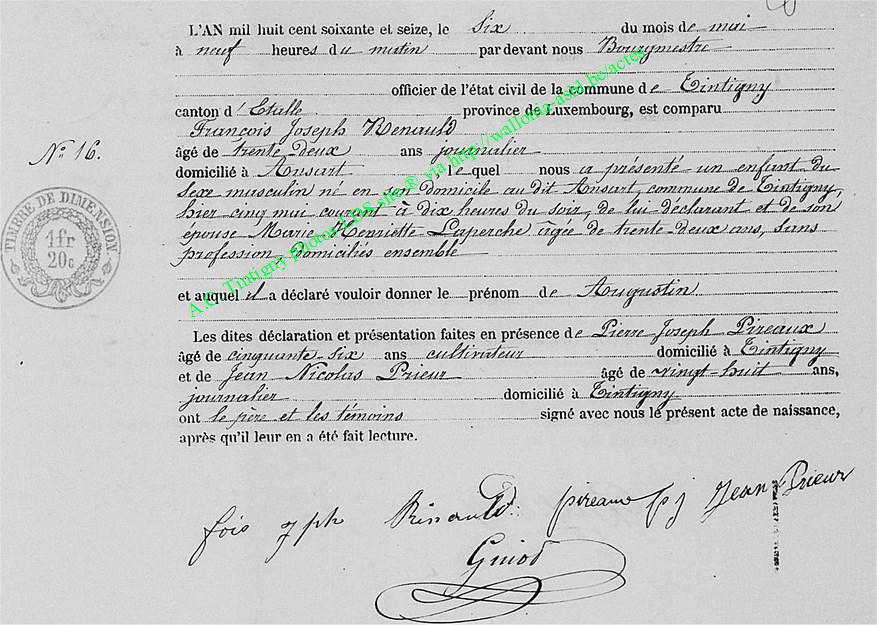 L'AN mil huit cent soixante et seize, le Six du mois de mai
à neuf heures du matin par devant nous Bourgmestre
officier de l'état civil de la commune de Tintigny
canton d'Etalle province de Luxembourg, est comparu
François Joseph Renauld
N° 16.
âgé de trente deux ans journalier
domicilié à Ansart, lequel nous a présenté un enfant du
sexe musculin né en son domicile au dit Ansart, commune de Tintigny,
hier cinq mai courant à dix heures du soir, de lui déclarant et de son
épouse Marie Henriette Laperche agée de trente deux ans, sans
profession, domiciliés ensemble
TIMBRE DE DIMENSION
1fr
20c
et auquel il a déclaré vouloir donner le prénom de Augustin
Les dites déclaration et présentation faites en présence de Pierre Joseph Pireaux
âgé de cinquante-six ans cultivateur domicilié à Tintigny
et de Jean Nicolas Prieur âgé de vingt-huit ans,
journalier domicilié à Tintigny
ont le père et les témoins signé avec nous le présent acte de naissance,
après qu'il leur en a été fait lecture.
fois jph Renauld pireaux pj Jean Prieur
Guiot
A.C. Tintigny photos LDS site ® via http://wallonia-asbl.be/actes